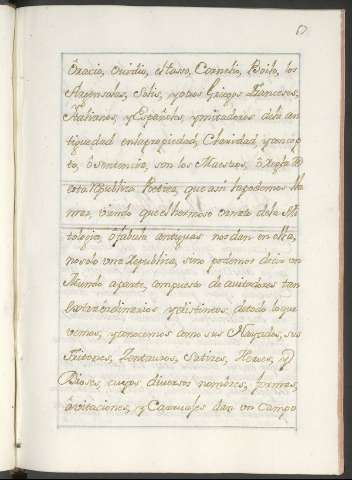 Oracio, Ovidio, el Tasso, Cornelio, Boilo, los
Argensolas, Solis, y otros Griegos Franceses,
Italianos, y Españoles ymitadores dela an
tiguedad enlapropiedad, Claridad, y concep
to, ô sentencia, son los Maestros, ô Reglas de
esta Republica Poetica, que asi la podemos lla
mar, viendo que el hermoso vasto dela Mi
tologia, ô fabula antigua nos dan en ella,
no solo una Republica, sino podemos decir un
Mundo aparte, compuesto de avitadores tan
Extraordinarios y distintos, de todo lo que
vemos, y conocemos como sus Nayades, sus
Tritones, Zentauros, Satiros, Heroes, y
Dioses, cuyos diversos nombres, formas,
âvitaciones, y Caracteres dan un Campo